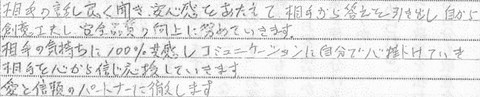 相手の話し良く聞き、安心感をあたえて、相手から答えを引き出し自から
創意工夫し安全品質の向上に努めていきます。
相手の気持ちに100%共感しコミュニケーションに自分で心掛けていき
相手を心から信じ応援していきます
愛と信頼のパートナーに徹します